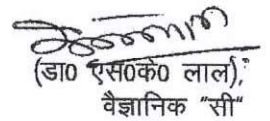 (डा0 एस0के0 लाल),
वैज्ञानिक "सी"